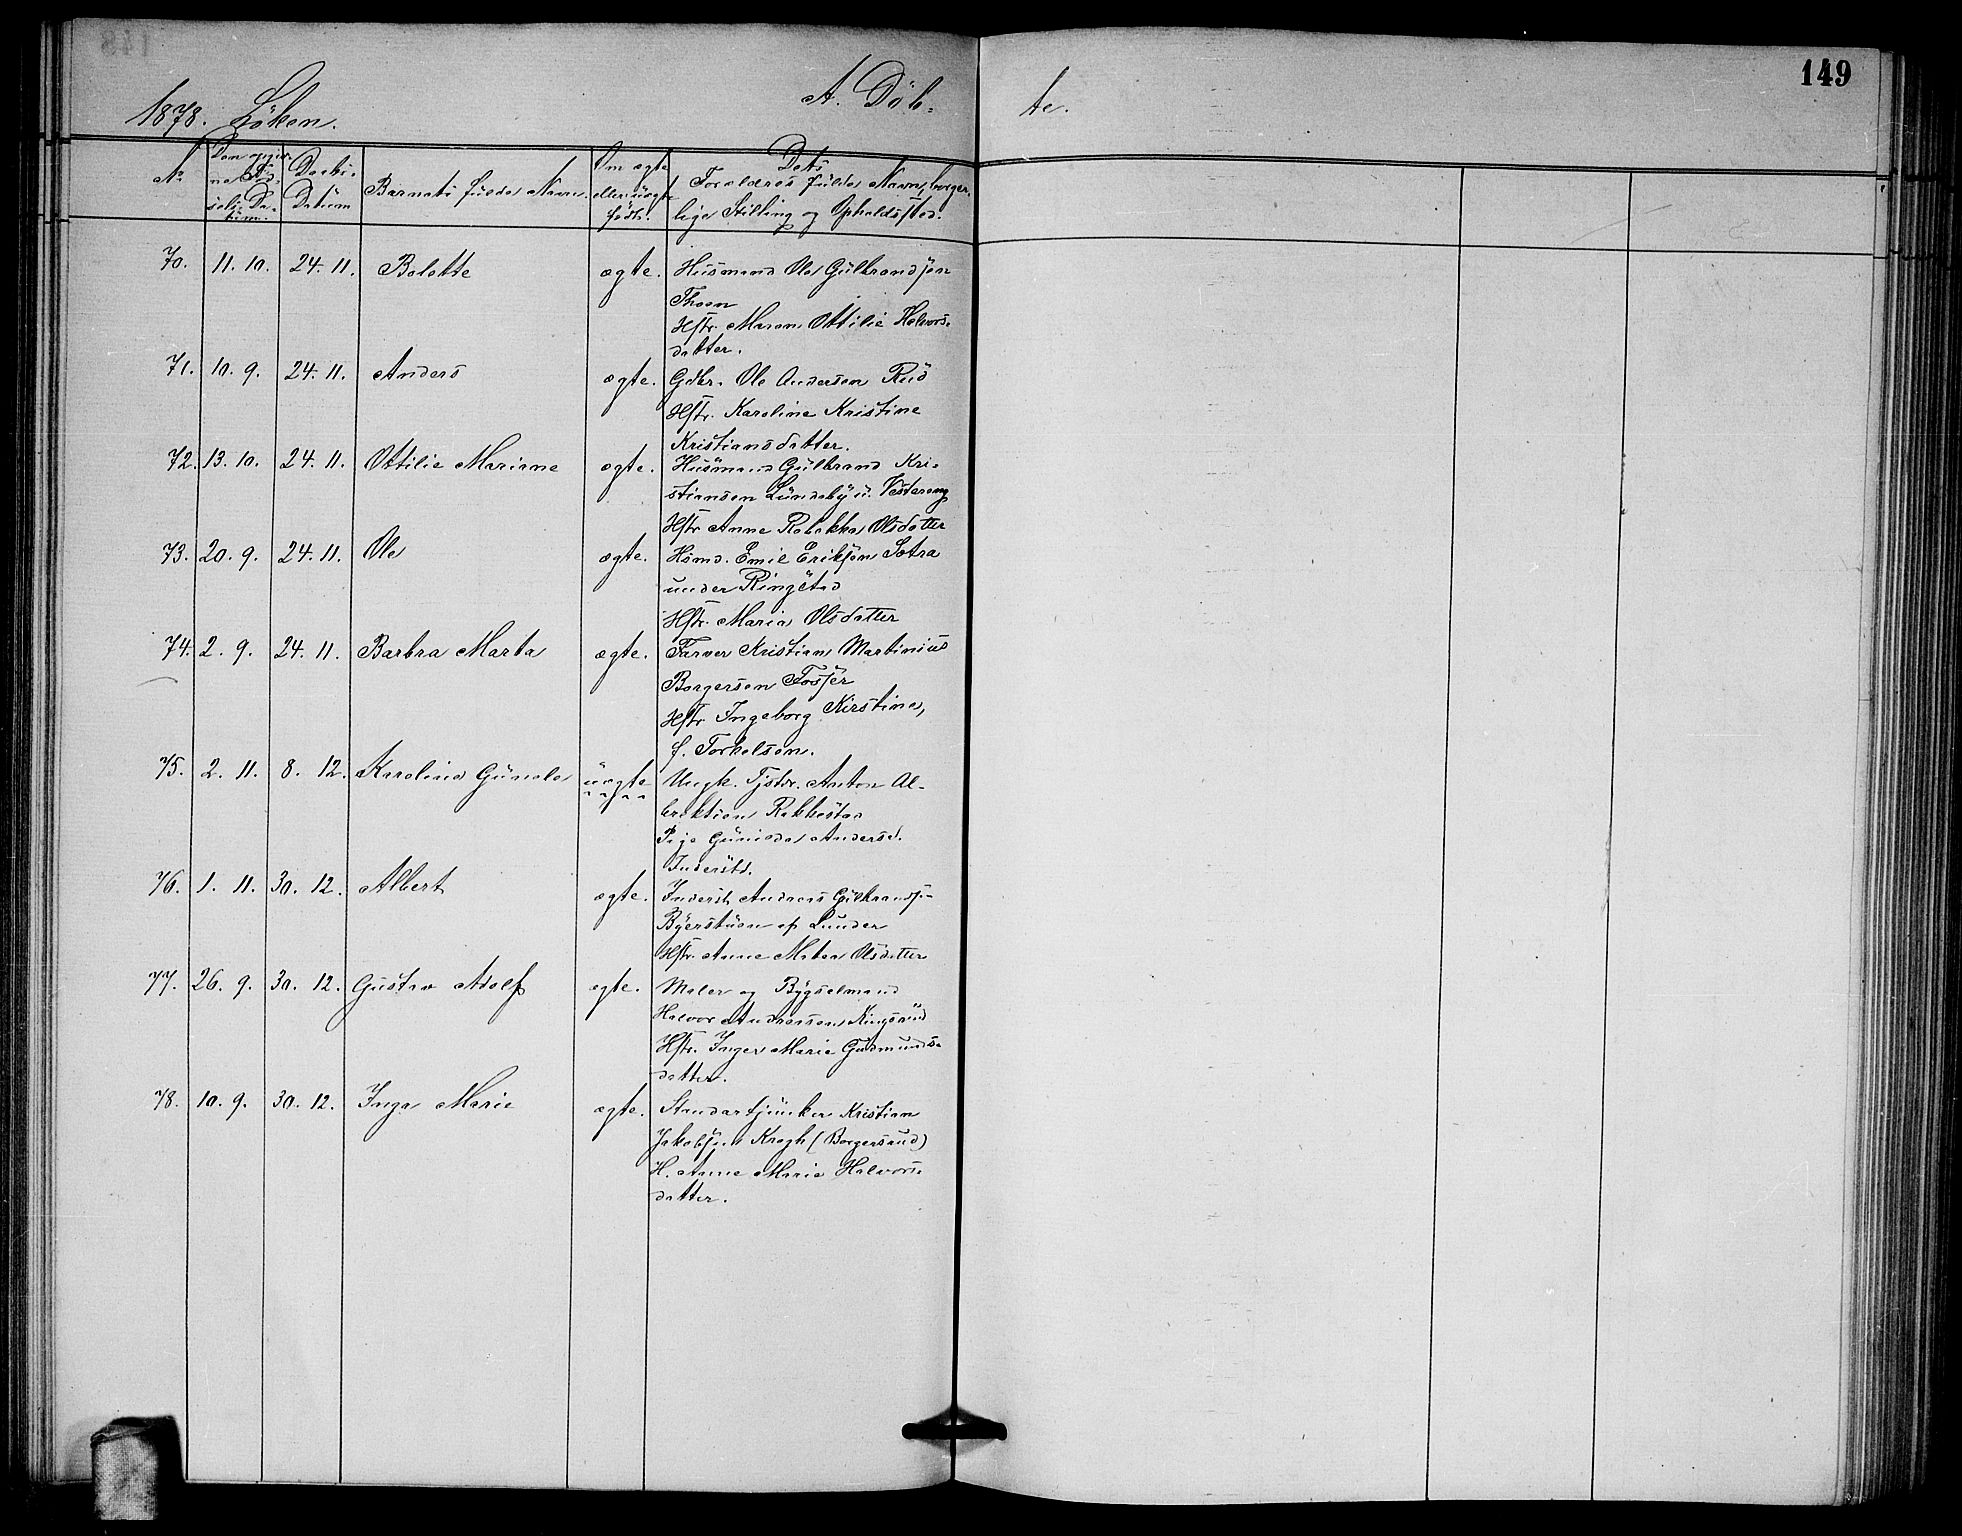 149
1878. Löken. A. Döb- te.
No Den opgivne Födsels-Datum. Daabs-Datum Barnets fulde Navn. Om ægte eller uægte født. Dets Forældres fulde Navn, borgerlige Stilling og Opholdssted.
70. 11. 10. 24. 11. Bolette ægte. Husmand Ole Gulbrandsen
Thoen
Hstr. Maren Ottilie Halvors-
datter.
71. 10. 9. 24. 11. Anders ægte. Gdbr. Ole Andersen Rud
Hstr. Karoline Kristine
Kristiansdatter.
72. 13. 10. 24. 11. Ottilie Mariane ægte. Husmand Gulbrand Kri-
stiansen Lundeby u. Vestereng
Hstr. Anne Rebekka Olsdatter
73. 20. 9. 24. 11. Ole ægte. Hsmd. Emil Eriksen Sætra
under Ringstad
Hstr. Maria Olsdatter
74. 2. 9. 24. 11. Barbra Marta ægte. Farver Kristian Martinius
Borgersen Fosser
Hstr. Ingeborg Kirstine,
f. Torkelsen.
75. 2. 11. 8. 12. Karoline Gunda uægte Ungk. Tjstdr. Anton Al-
brektsen Rakkestad
Pige Andersd.
Inderstd.
76. 1. 11. 30. 12. Albert ægte. Inderst Andreas Gulbrands.-
Byerstuen af Lunder
Hstr. Anne Matea Olsdatter
77. 26. 9. 30. 12. Gustav Adolf ægte. Maler og Bygselmand
Halvor Andreassen Kinsrud
Hstr. Inger Marie Gudmunds-
datter.
78. 10. 9. 30. 12. Inga Marie ægte. Standartjunker Kristian
Jakobsen Krogh (Borgersrud)
H. Anne Marie Halvors-
datter.